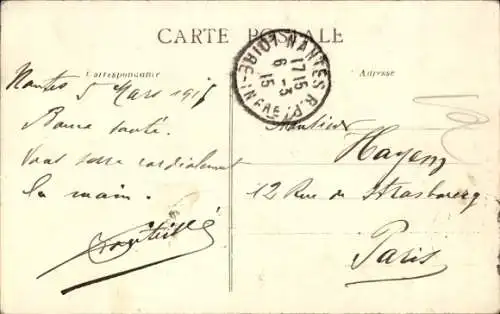 CARTE POSTALE
Correspondance
Adresse
NANTES R.P.
LOIRE-INFRE
17 15
6 - 3
15
Nantes 5 Mars 1915
Bonne santé.
Vous serre cordialement
la main.
Monsieur
Hayem
12 Rue de Strasbourg
Paris